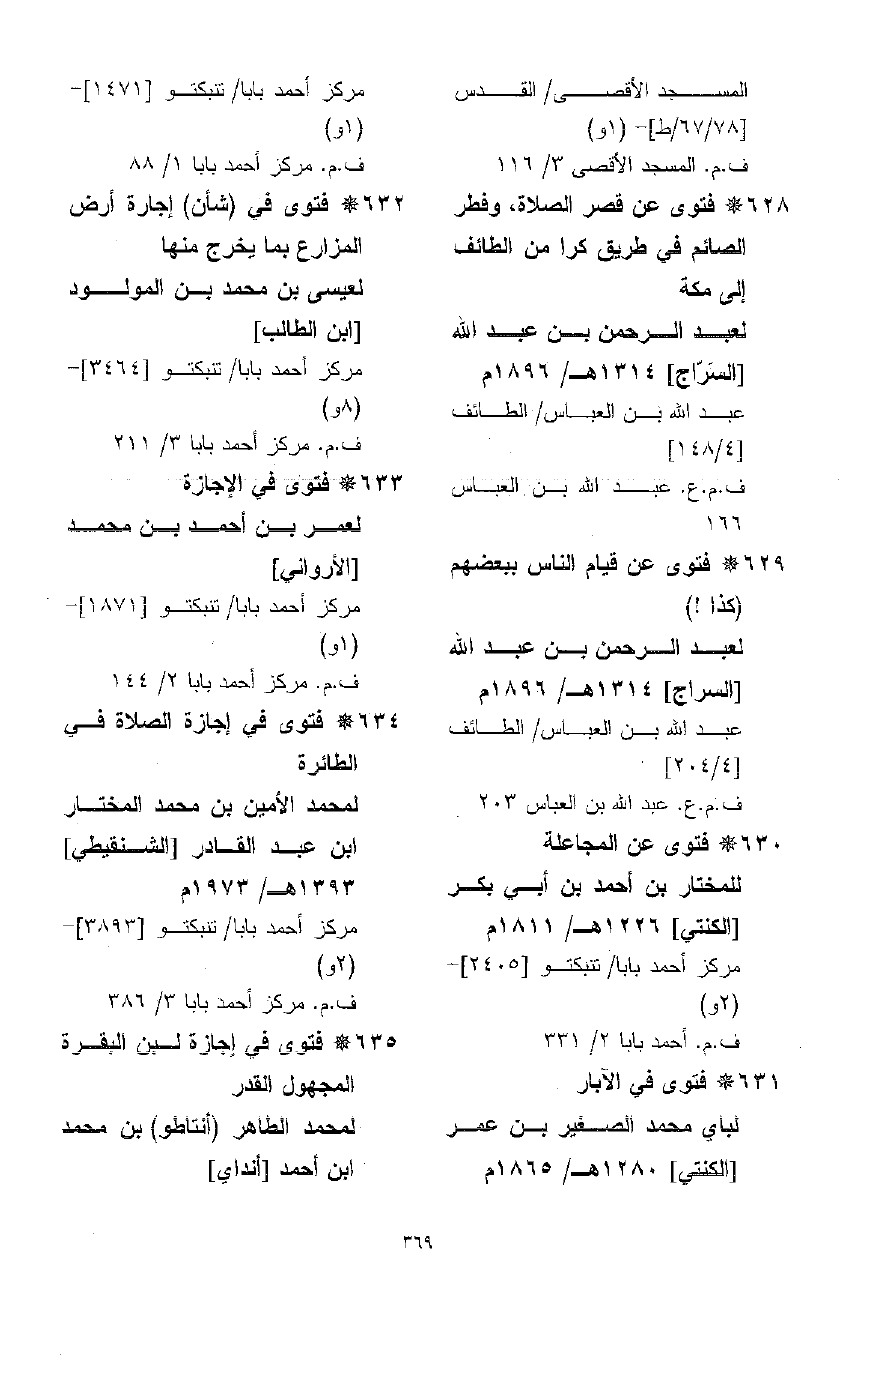 المسجد الأقصى/ القدس
[٦٧/٧٨/ط]- (١و)
ف.م. المسجد الأقصى ٣/ ١١٦
٦٢٨* فتوى عن قصر الصلاة، وفطر
الصائم في طريق كرا من الطائف
إلى مكة
لعبد الرحمن بن عبد الله
[السّرّاج] ١٣١٤هـ/ ١٨٩٦م
عبد الله بن العباس/ الطائف
[١٤٨/٤]
ف.م.ع. عبد الله بن العباس
١٦٦
٦٢٩* فتوى عن قيام الناس ببعضهم
(كذا !)
لعبد الرحمن بن عبد الله
[السراج] ١٣١٤هـ/ ١٨٩٦م
عبد الله بن العباس/ الطائف
[٢٠٤/٤]
ف.م.ع. عبد الله بن العباس ٢٠٣
٦٣٠* فتوى عن المجاعلة
للمختار بن أحمد بن أبي بكر
[الكنتي] ١٢٢٦هـ/ ١٨١١م
مركز أحمد بابا/ تنبكتو [٢٤٠٥]-
(٢و)
ف.م. أحمد بابا ٢/ ٣٣١
٦٣١* فتوى في الآبار
لباي محمد الصغير بن عمر
[الكنتي] ١٢٨٠هـ/ ١٨٦٥م
مركز أحمد بابا/ تنبكتو [١٤٧١]-
(١و)
ف.م. مركز أحمد بابا ١/ ٨٨
٦٣٢* فتوى في (شأن) إجارة أرض
المزارع بما يخرج منها
لعيسى بن محمد بن المولود
[ابن الطالب]
مركز أحمد بابا/ تنبكتو [٣٤٦٤]-
(٨و)
ف.م. مركز أحمد بابا ٣/ ٢١١
٦٣٣* فتوى في الإجازة
لعمر بن أحمد بن محمد
[الأرواني]
مركز أحمد بابا/ تنبكتو [١٨٧١]-
(١و)
ف.م. مركز أحمد بابا ٢/ ١٤٤
٦٣٤* فتوى في إجازة الصلاة في
الطائرة
لمحمد الأمين بن محمد المختار
ابن عبد القادر [الشنقيطي]
١٣٩٣هـ/ ١٩٧٣م
مركز أحمد بابا/ تنبكتو [٣٨٩٣]-
(٢و)
ف.م. مركز أحمد بابا ٣/ ٣٨٦
٦٣٥* فتوى في إجازة لبن البقرة
المجهول القدر
لمحمد الطاهر (أنتاطو) بن محمد
ابن أحمد [أنداي]
٣٦٩